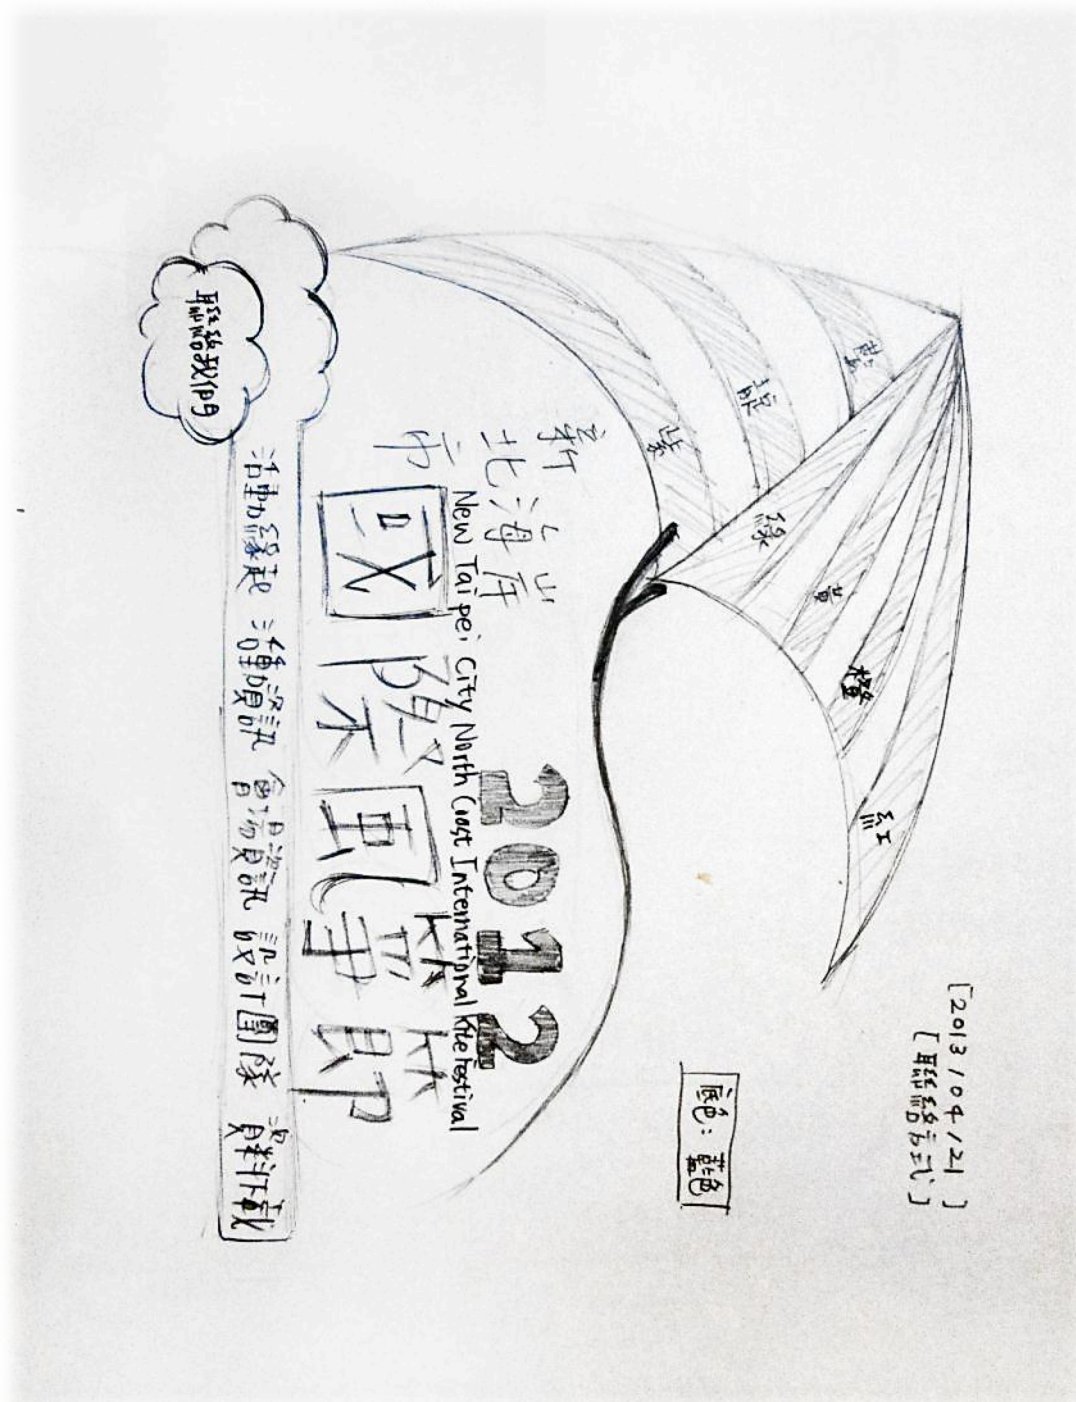 [2013/04/21]
[聯絡方式]
紅
橙
黃
綠
藍
靛
紫
底色：藍色
新
北海岸
市
2012
New Taipei City North Coast International Kite Festival
國際風箏節
聯絡我們
活動緣起 活動資訊 會場資訊 設計團隊 資料下載